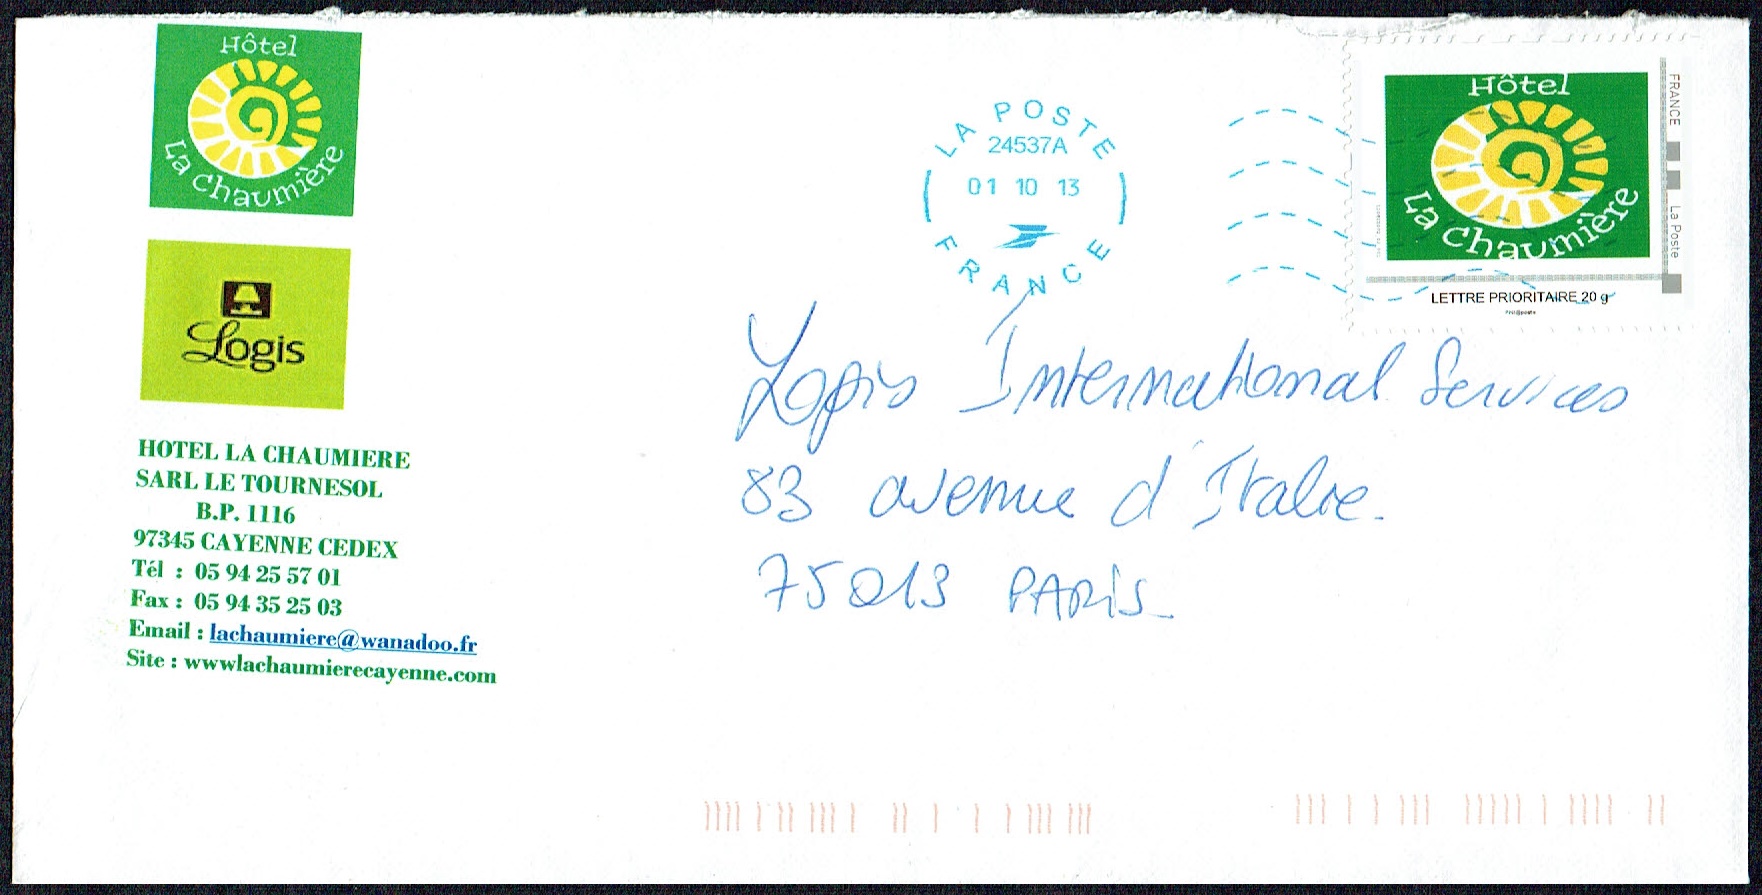 Hôtel
La Chaumière
Logis
HOTEL LA CHAUMIERE
SARL LE TOURNESOL
B.P. 1116
97345 CAYENNE CEDEX
Tél : 05 94 25 57 01
Fax : 05 94 35 25 03
Email : lachaumiere@wanadoo.fr
Site : wwwlachaumierecayenne.com
LA POSTE
24537A
01 10 13
FRANCE
Hôtel
La Chaumière
FRANCE
La Poste
LETTRE PRIORITAIRE 20 g
Logis International Services
83 avenue d'Italie.
75013 PARIS